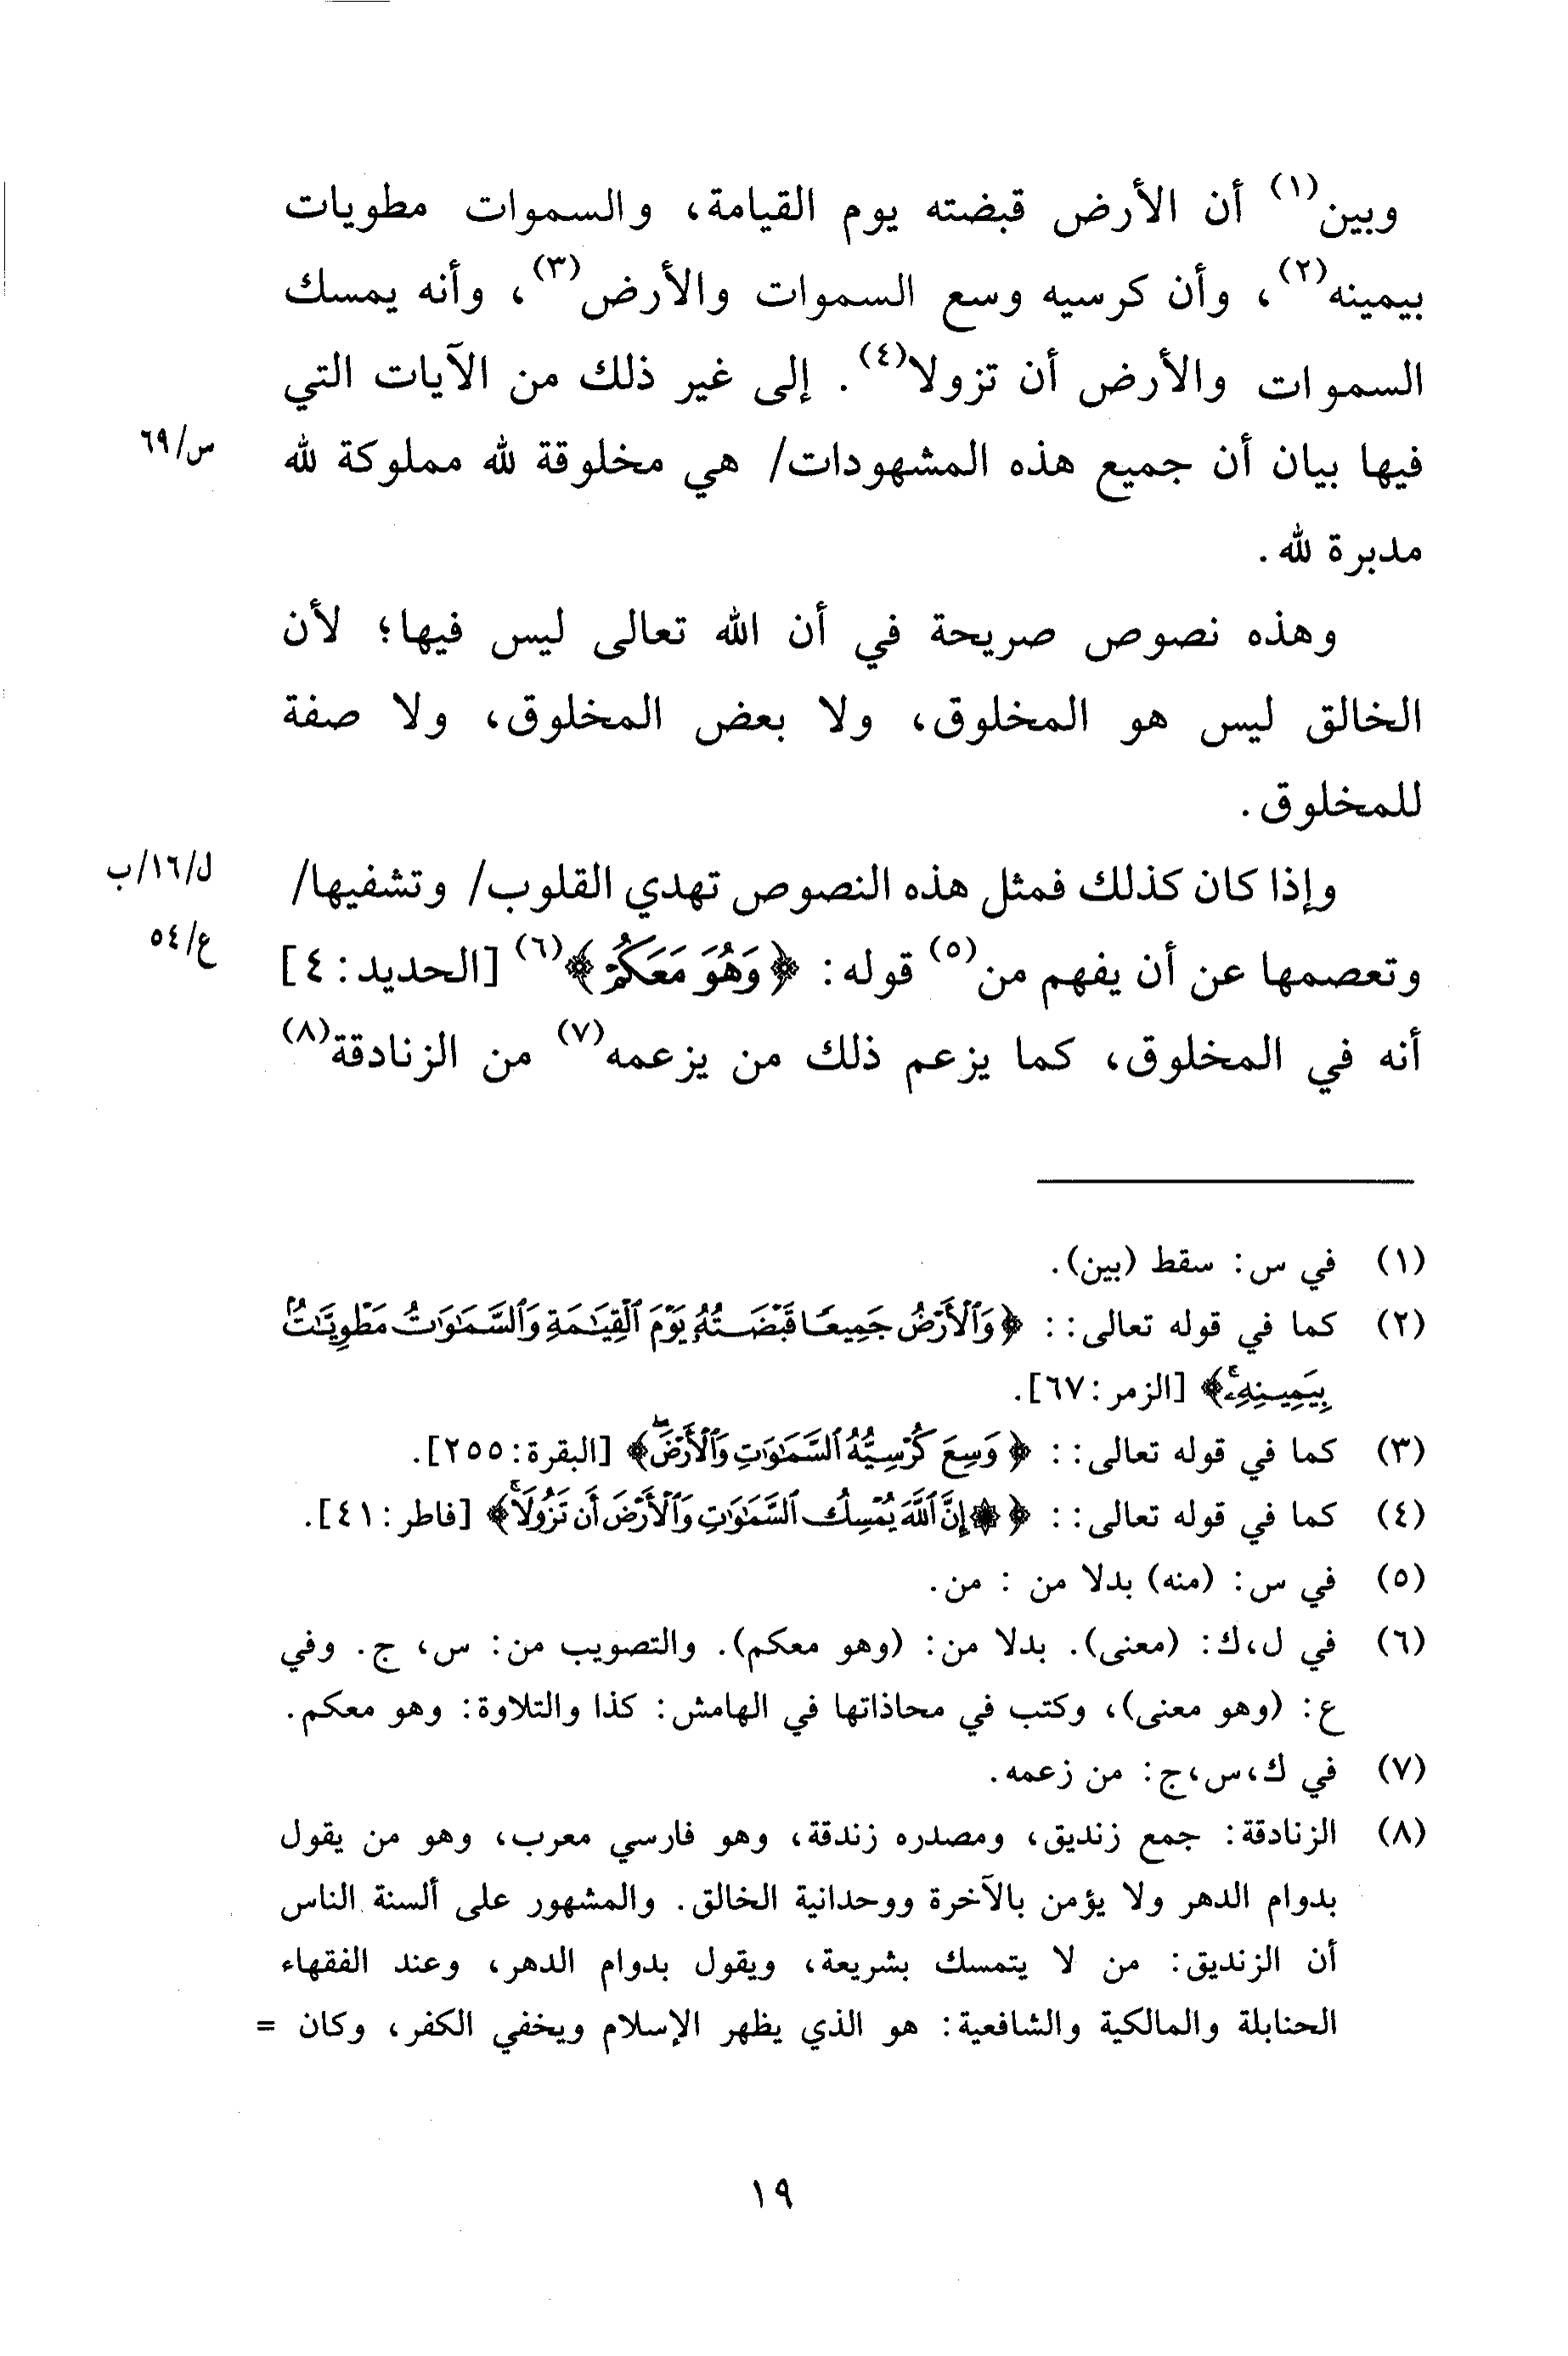 وبين(١) أن الأرض قبضته يوم القيامة، والسموات مطويات
بيمينه(٢)، وأن كرسيه وسع السموات والأرض(٣)، وأنه يمسك
السموات والأرض أن تزولا(٤). إلى غير ذلك من الآيات التي
فيها بيان أن جميع هذه المشهودات/ هي مخلوقة لله مملوكة لله
س/٦٩
مدبرة لله.
وهذه نصوص صريحة في أن الله تعالى ليس فيها؛ لأن
الخالق ليس هو المخلوق، ولا بعض المخلوق، ولا صفة
للمخلوق.
وإذا كان كذلك فمثل هذه النصوص تهدي القلوب/ وتشفيها/
ل/١٦/ب
وتعصمها عن أن يفهم من(٥) قوله: ﴿وَهُوَ مَعَكُمْ﴾(٦) [الحديد: ٤]
ع/٥٤
أنه في المخلوق، كما يزعم ذلك من يزعمه(٧) من الزنادقة(٨)
(١) في س: سقط (بين).
(٢) كما في قوله تعالى: : ﴿وَٱلْأَرْضُ جَمِيعًا قَبْضَتُهُۥ يَوْمَ ٱلْقِيَٰمَةِ وَٱلسَّمَٰوَٰتُ مَطْوِيَّٰتٌۢ
بِيَمِينِهِۦۚ﴾ [الزمر: ٦٧].
(٣) كما في قوله تعالى: : ﴿وَسِعَ كُرْسِيُّهُ ٱلسَّمَٰوَٰتِ وَٱلْأَرْضَۖ﴾ [البقرة: ٢٥٥].
(٤) كما في قوله تعالى: : ﴿۞ إِنَّ ٱللَّهَ يُمْسِكُ ٱلسَّمَٰوَٰتِ وَٱلْأَرْضَ أَن تَزُولَاۚ﴾ [فاطر: ٤١].
(٥) في س: (منه) بدلا من : من.
(٦) في ل،ك: (معنى). بدلا من: (وهو معكم). والتصويب من: س، ج. وفي
ع: (وهو معنى)، وكتب في محاذاتها في الهامش: كذا والتلاوة: وهو معكم.
(٧) في ك،س،ج: من زعمه.
(٨) الزنادقة: جمع زنديق، ومصدره زندقة، وهو فارسي معرب، وهو من يقول
بدوام الدهر ولا يؤمن بالآخرة ووحدانية الخالق. والمشهور على ألسنة الناس
أن الزنديق: من لا يتمسك بشريعة، ويقول بدوام الدهر، وعند الفقهاء
الحنابلة والمالكية والشافعية: هو الذي يظهر الإسلام ويخفي الكفر، وكان =
١٩